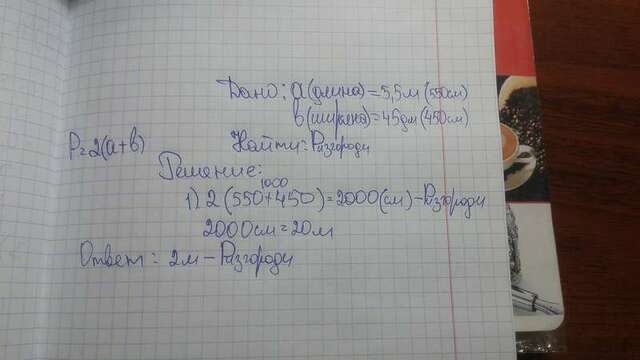 Дано: a (длина) = 5,5 м (550см)
b (ширина) = 45дм (450см)
Найти: Pизгороди
P=2(a+b)
Решение:
1000
1) 2 (550+450) = 2000 (см) - Pизгороди
2000см = 20м
Ответ: 2м - Pизгороди